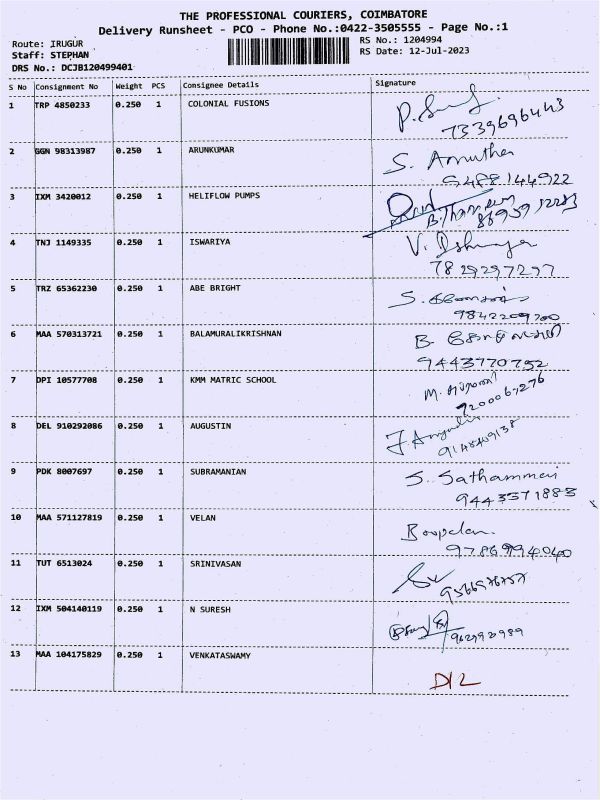 THE PROFESSIONAL COURIERS, COIMBATORE
Delivery Runsheet - PCO - Phone No.:0422-3505555 - Page No.:1
Route: IRUGUR
RS No.: 1204994
Staff: STEPHAN
RS Date: 12-Jul-2023
DRS No.: DCJB120499401
S No Consignment No Weight PCS Consignee Details Signature
1 TRP 4850233 0.250 1 COLONIAL FUSIONS
7339696443
2 GGN 98313987 0.250 1 ARUNKUMAR
S. Amutha
3 IXM 3420012 0.250 1 HELIFLOW PUMPS
4 TNJ 1149335 0.250 1 ISWARIYA
7829297297
5 TRZ 65362230 0.250 1 ABE BRIGHT
S.
9842209700
6 MAA 570313721 0.250 1 BALAMURALIKRISHNAN
B.
9443770752
7 DPI 10577708 0.250 1 KMM MATRIC SCHOOL
M.
7200067276
8 DEL 910292086 0.250 1 AUGUSTIN
9 PDK 8007697 0.250 1 SUBRAMANIAN
S. Sathammai
9443371883
10 MAA 571127819 0.250 1 VELAN
Boopalan.
9786994040
11 TUT 6513024 0.250 1 SRINIVASAN
12 IXM 504140119 0.250 1 N SURESH
13 MAA 104175829 0.250 1 VENKATASWAMY
D/L